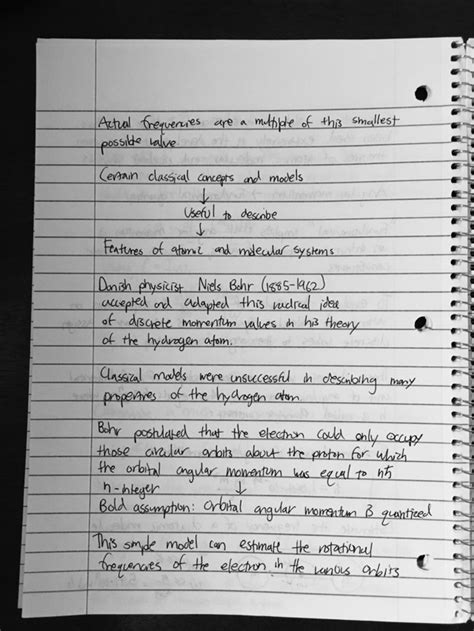 Actual frequencies are a multiple of this smallest
possible value
Certain classical concepts and models
↓
Useful to describe
↓
Features of atomic and molecular systems
Danish physicist Niels Bohr (1885-1962)
accepted and adapted this radical idea
of discrete momentum values in his theory
of the hydrogen atom.
Classical models were unsuccessful in describing many
properties of the hydrogen atom
Bohr postulated that the electron could only occupy
those circular orbits about the proton for which
the orbital angular momentum was equal to nħ
n-integer ↓
Bold assumption: Orbital angular momentum is quantized
This simple model can estimate the rotational
frequencies of the electron in the various orbits